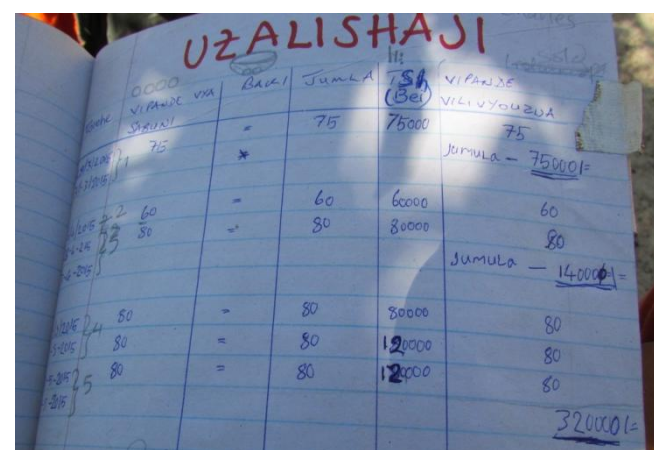 UZALISHAJI
VIPANDE VYA SABUNI BACKI JUMLA TSH (Bei) VIPANDE VILIVYOUZWA
75 = 75 75000 75
Jumula - 75000/=
2 60 = 60 60000 60
3 80 = 80 80000 80
Jumula - 140000/=
4 80 = 80 80000 80
80 = 80 120000 80
5 80 = 80 120000 80
320000/=